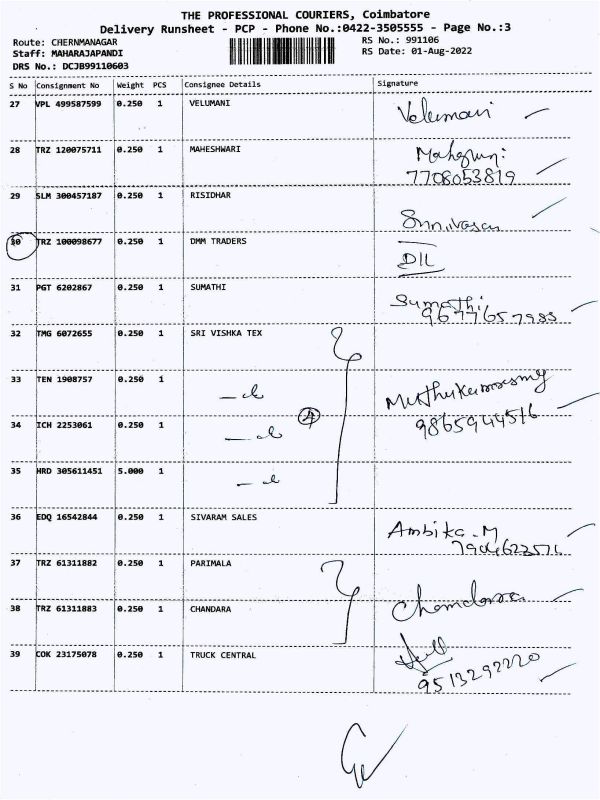 THE PROFESSIONAL COURIERS, Coimbatore
Delivery Runsheet - PCP - Phone No.:0422-3505555 - Page No.:3
Route: CHERNMANAGAR RS No.: 991106
Staff: MAHARAJAPANDI RS Date: 01-Aug-2022
DRS No.: DCJB99110603
S No Consignment No Weight PCS Consignee Details Signature
27 VPL 499587599 0.250 1 VELUMANI Velumani
28 TRZ 120075711 0.250 1 MAHESHWARI
7708053819
29 SLM 300457187 0.250 1 RISIDHAR
Srinivasan
30 TRZ 100098677 0.250 1 DMM TRADERS
31 PGT 6202867 0.250 1 SUMATHI Sumathi
9677657983
32 TMG 6072655 0.250 1 SRI VISHKA TEX
33 TEN 1908757 0.250 1 Muthukumarasamy
34 ICH 2253061 0.250 1 4 9865944516
35 HRD 305611451 5.000 1
36 EDQ 16542844 0.250 1 SIVARAM SALES Ambika.M
37 TRZ 61311882 0.250 1 PARIMALA
38 TRZ 61311883 0.250 1 CHANDARA
39 COK 23175078 0.250 1 TRUCK CENTRAL
9513292220